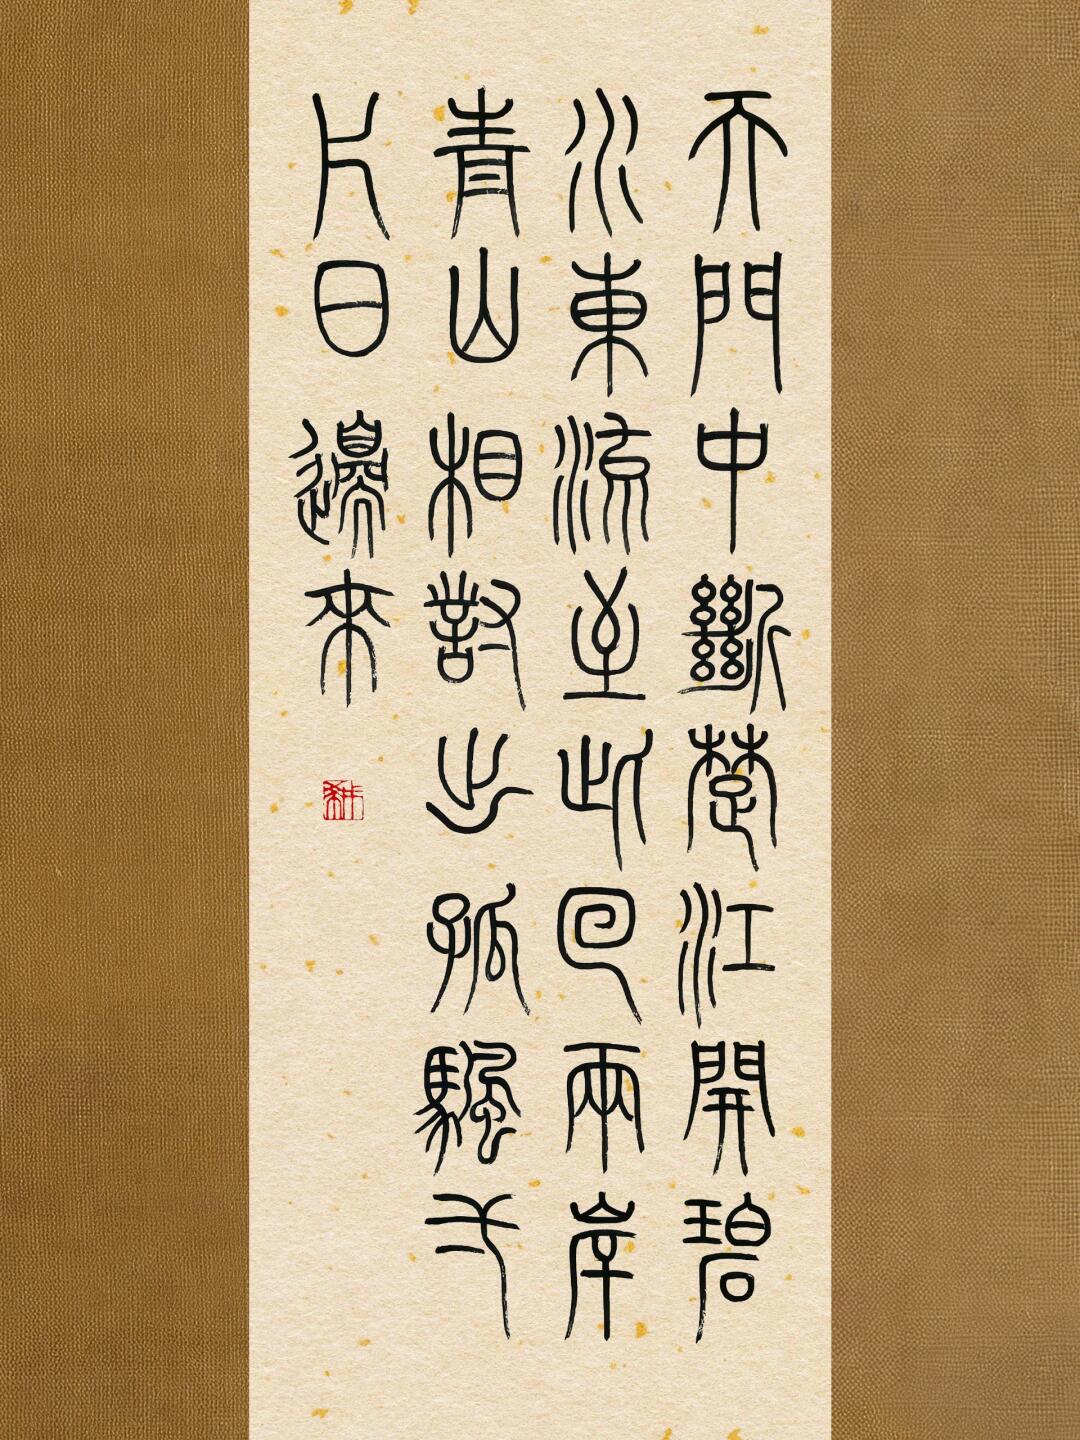 天門中斷楚江開碧
水東流至此回兩岸
青山相對出孤颿弌
片日邊來